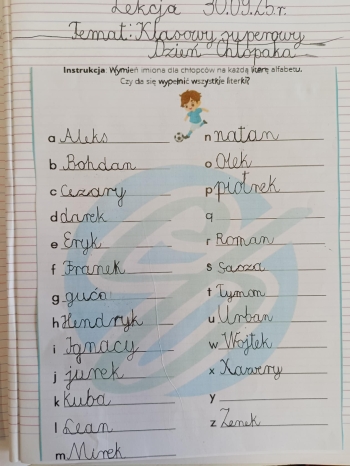 Lekcja 30.09.25r.
Temat: Klasowy, super
Dzień Chłopaka
Instrukcja: Wymień imiona dla chłopców na każdą literę alfabetu.
Czy da się wypełnić wszystkie literki?
a Aleks
b Bohdan
c Cezary
d darek
e Eryk
f Franek
g gucio
h Hendryk
i Ignacy
j jurek
k Kuba
l Lean
m Mirek
n natan
o Olek
p piotrek
q
r Roman
s Sasza
t Tymon
u Urban
w Wojtek
x Xawery
y
z Zenek